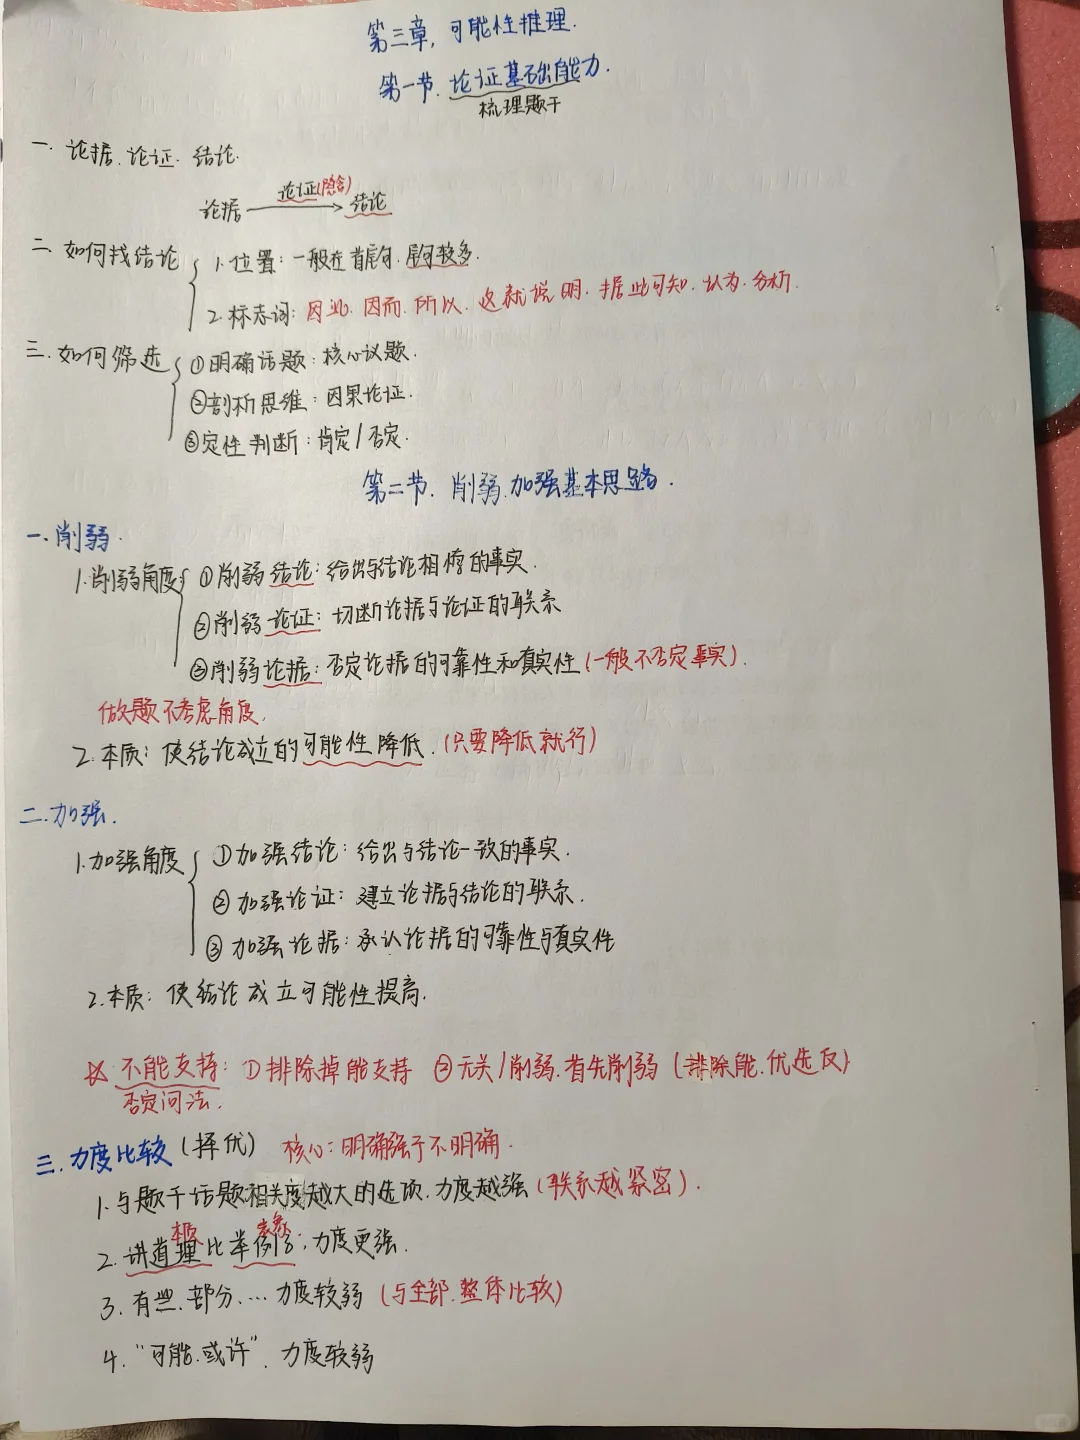 第三章，可能性推理．
第一节．论证基础能力．
梳理题干
一．论据．论证．结论．
论据 论证(隐含) 结论
二．如何找结论
1．位置：一般在首尾句．尾句较多．
2．标志词：因此．因而．所以．这就说明．据此可知．认为．分析．
三．如何筛选
①明确话题：核心议题．
②剖析思维：因果论证．
③定性判断：肯定/否定．
第二节．削弱．加强基本思路．
一．削弱．
1．削弱角度
①削弱结论：给出与结论相悖的事实．
②削弱论证：切断论据与论证的联系
③削弱论据：否定论据的可靠性和真实性(一般不否定事实)．
做题不考虑角度．
2．本质：使结论成立的可能性降低．(只要降低就行)
二．加强．
1．加强角度
①加强结论：给出与结论一致的事实．
②加强论证：建立论据与结论的联系．
③加强论据：承认论据的可靠性与真实性
2．本质：使结论成立可能性提高．
不能支持：①排除掉能支持 ②无关/削弱．首先削弱(排除能．优选反)
否定问法．
三．力度比较(择优) 核心：明确强于不明确．
1．与题干话题相关度越大的选项．力度越强(联系越紧密)．
本质 表象．
2．讲道理比举例子，力度更强．
3．有些．部分．… 力度较弱(与全部．整体比较)
4．“可能．或许”．力度较弱